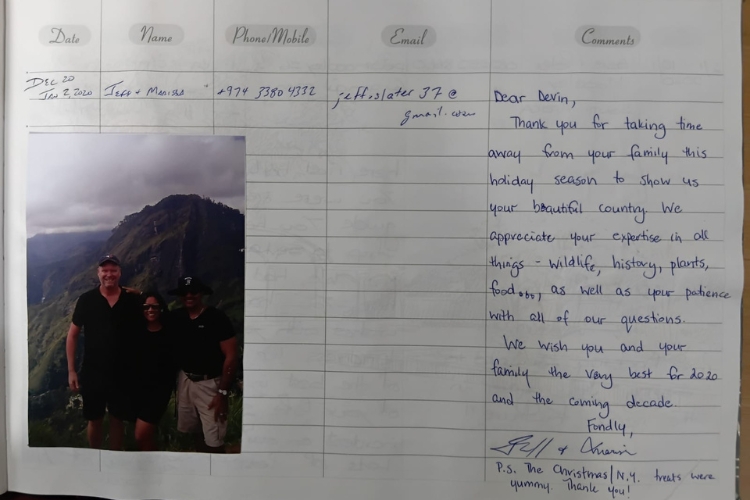 Date Name Phone/Mobile Email Comments
Dec 20
Jan 2, 2020 Jeff + Marissa +974 3380 4332 jeff.slater 37 @
gmail.com
Dear Devin,
Thank you for taking time
away from your family this
holiday season to show us
your beautiful country. We
appreciate your expertise in all
things - wildlife, history, plants,
food..., as well as your patience
with all of our questions.
We wish you and your
family the very best for 2020
and the coming decade.
Fondly,
Jeff +
P.S. The Christmas/N.Y. treats were
yummy. Thank you!